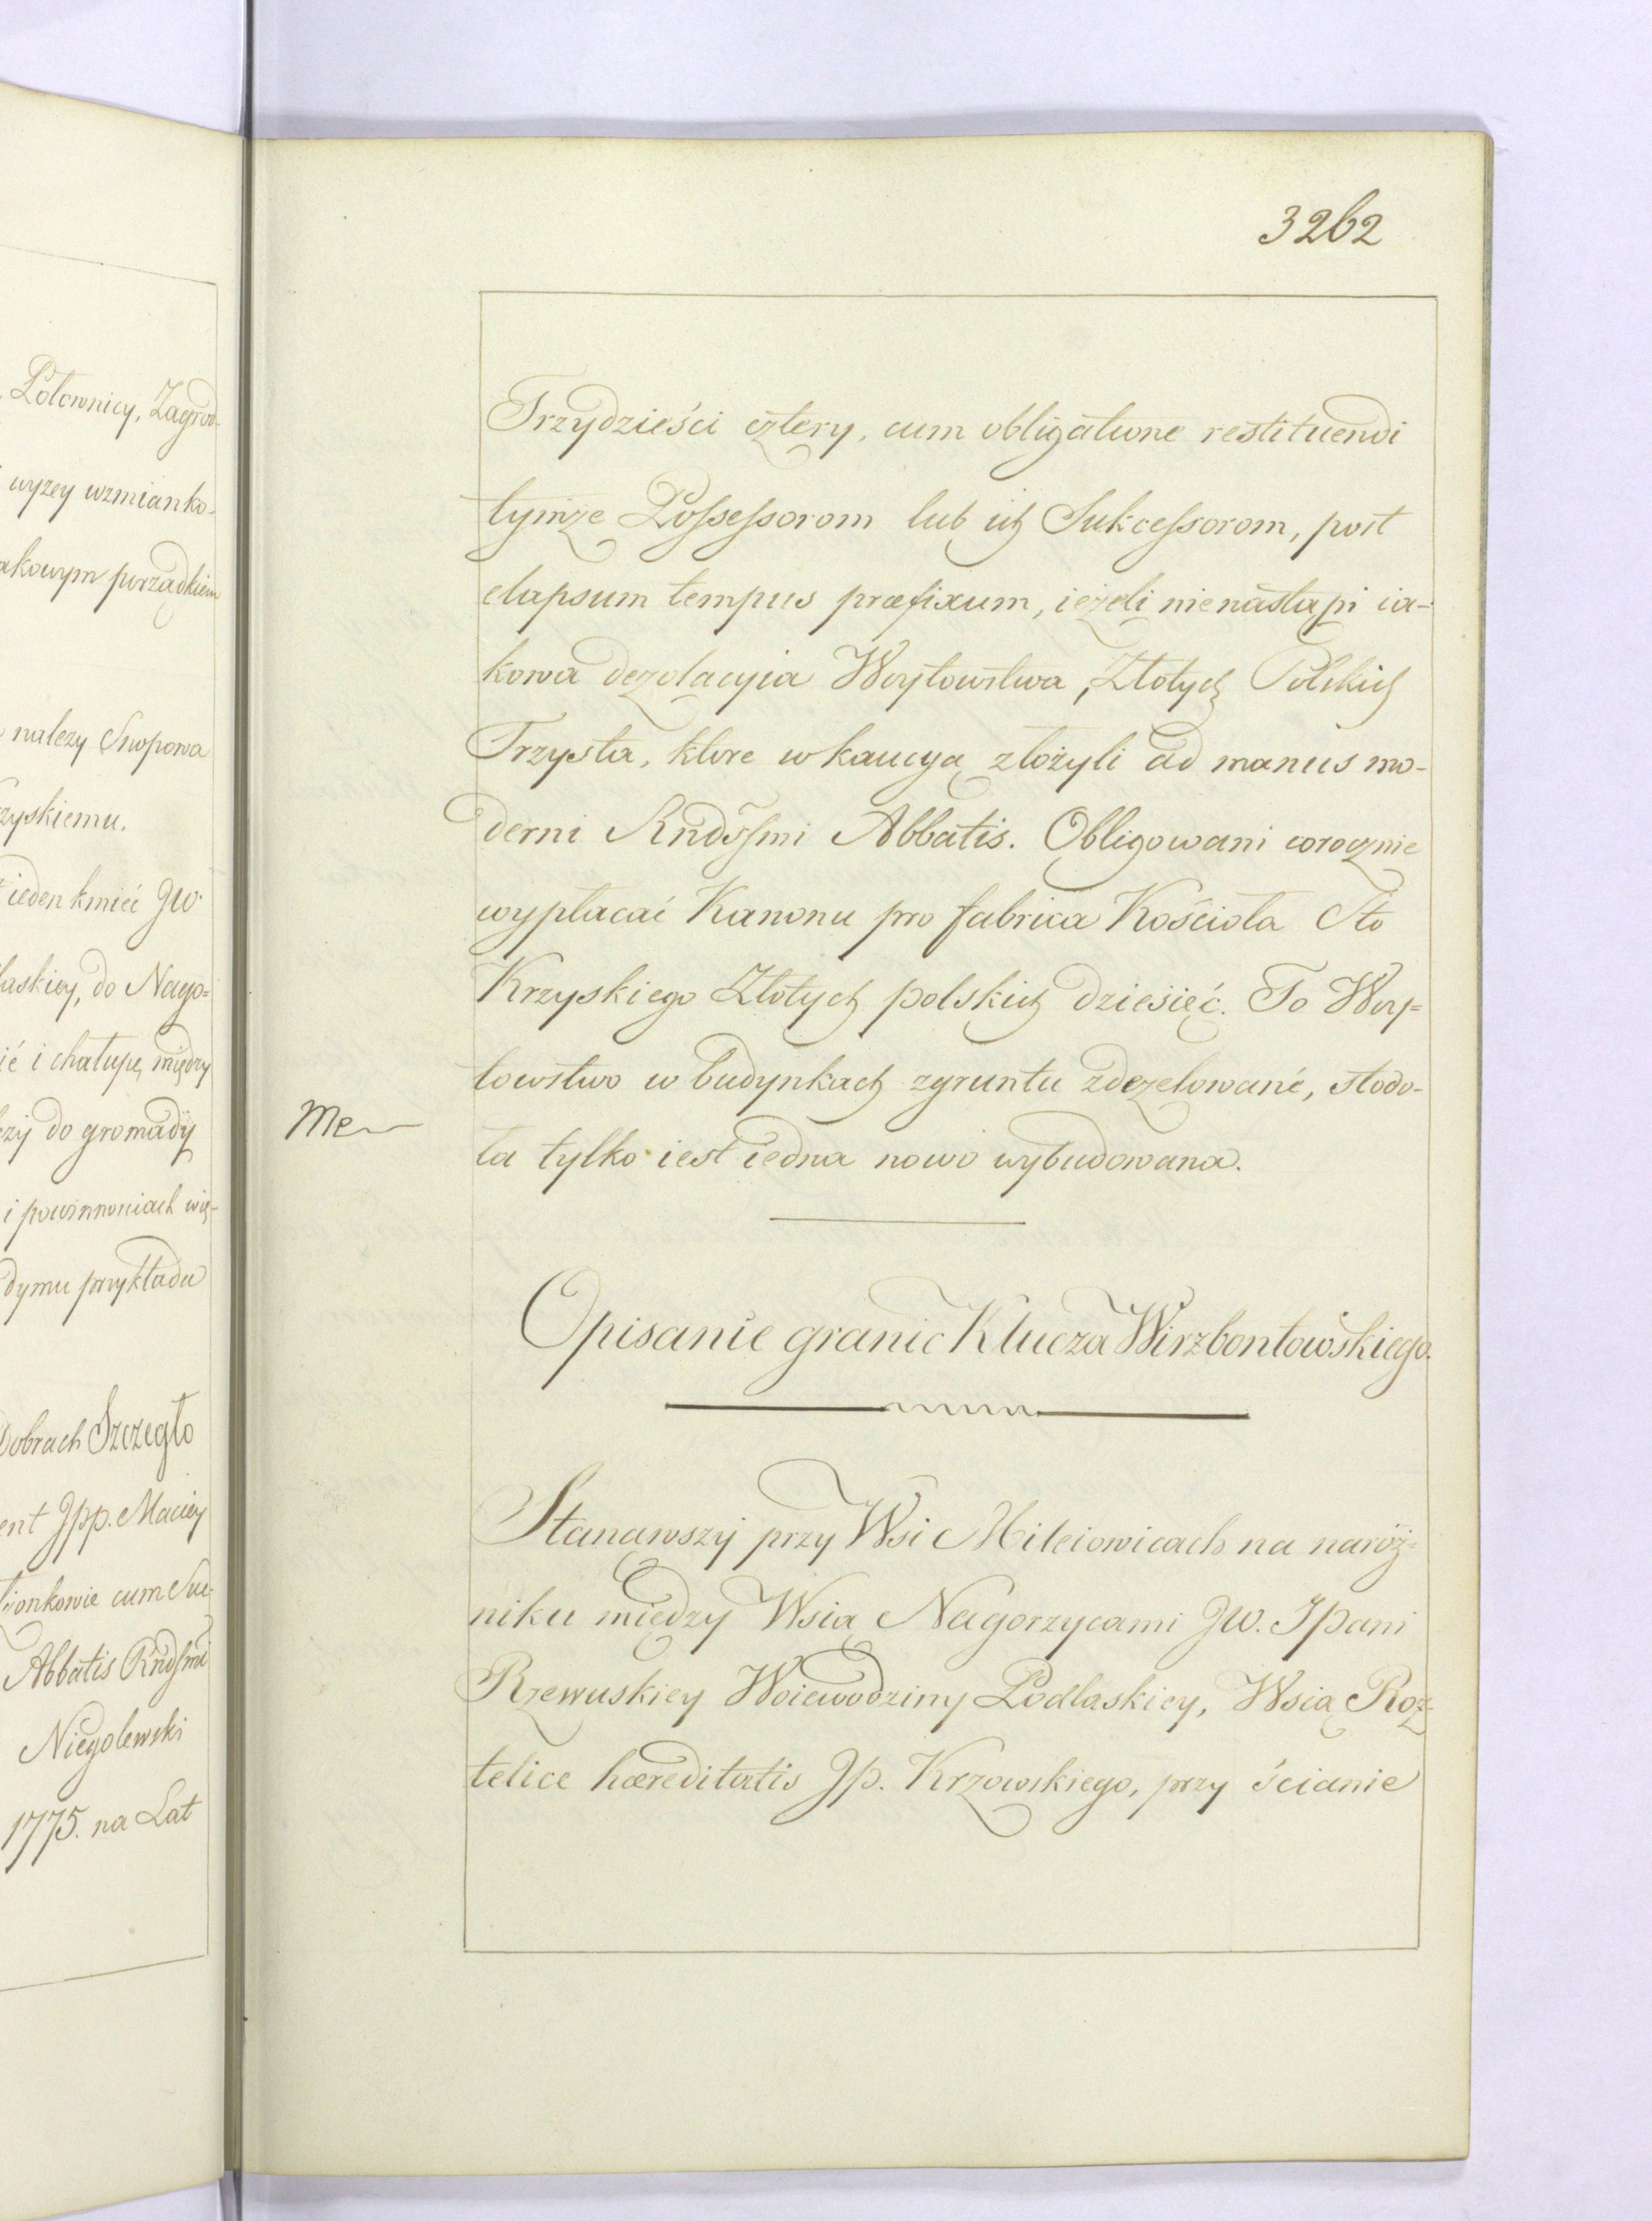 Połownicy, Zagrod-
wyzey wzmianko-
akowym porządkiem
nalezy Snopowa
zyskiemu.
ieden kmieć JW.
laskiey, do Nago=
ić i chałupę, między
ezy do gromady
i powinnościach wię-
dymu przykładu
Dobrach Szczegło
ent Jpp. Maciey
żonkowie cum Suc-
Abbatis Rndssmi
Niegolewski
1775. na Lat
3262
Trzydzieści cztery, cum obligatione restituendi
tymże Possessorom lub ich Sukcessorom, post
elapsum tempus præfixum, ieżeli nienastąpi ia-
kowa dezolacyia Woytowstwa, Złotych Polskich
Trzysta, ktore w kaucyą złożyli ad manus mo-
derni Rndssmi Abbatis. Obligowani corocznie
wypłacać Kanonu pro fabrica Kościoła Sto
Krzyskiego Złotych polskich dziesięć. To Woy=
towstwo w budynkach zgruntu zdezelowané, stodo-
Me
ła tylko iest iedna nowo wybudowana.
Opisanie granic Klucza Wirzbontowskiego.
Stanąwszy przy Wsi Mileiowicach na naróż=
niku między Wsią Nagorzycami JW. Jpani
Rzewuskiey Woiewodziny Podlaskiey, Wsią Roz=
telice hæreditatis Jp. Krzowskiego, przy ścianie